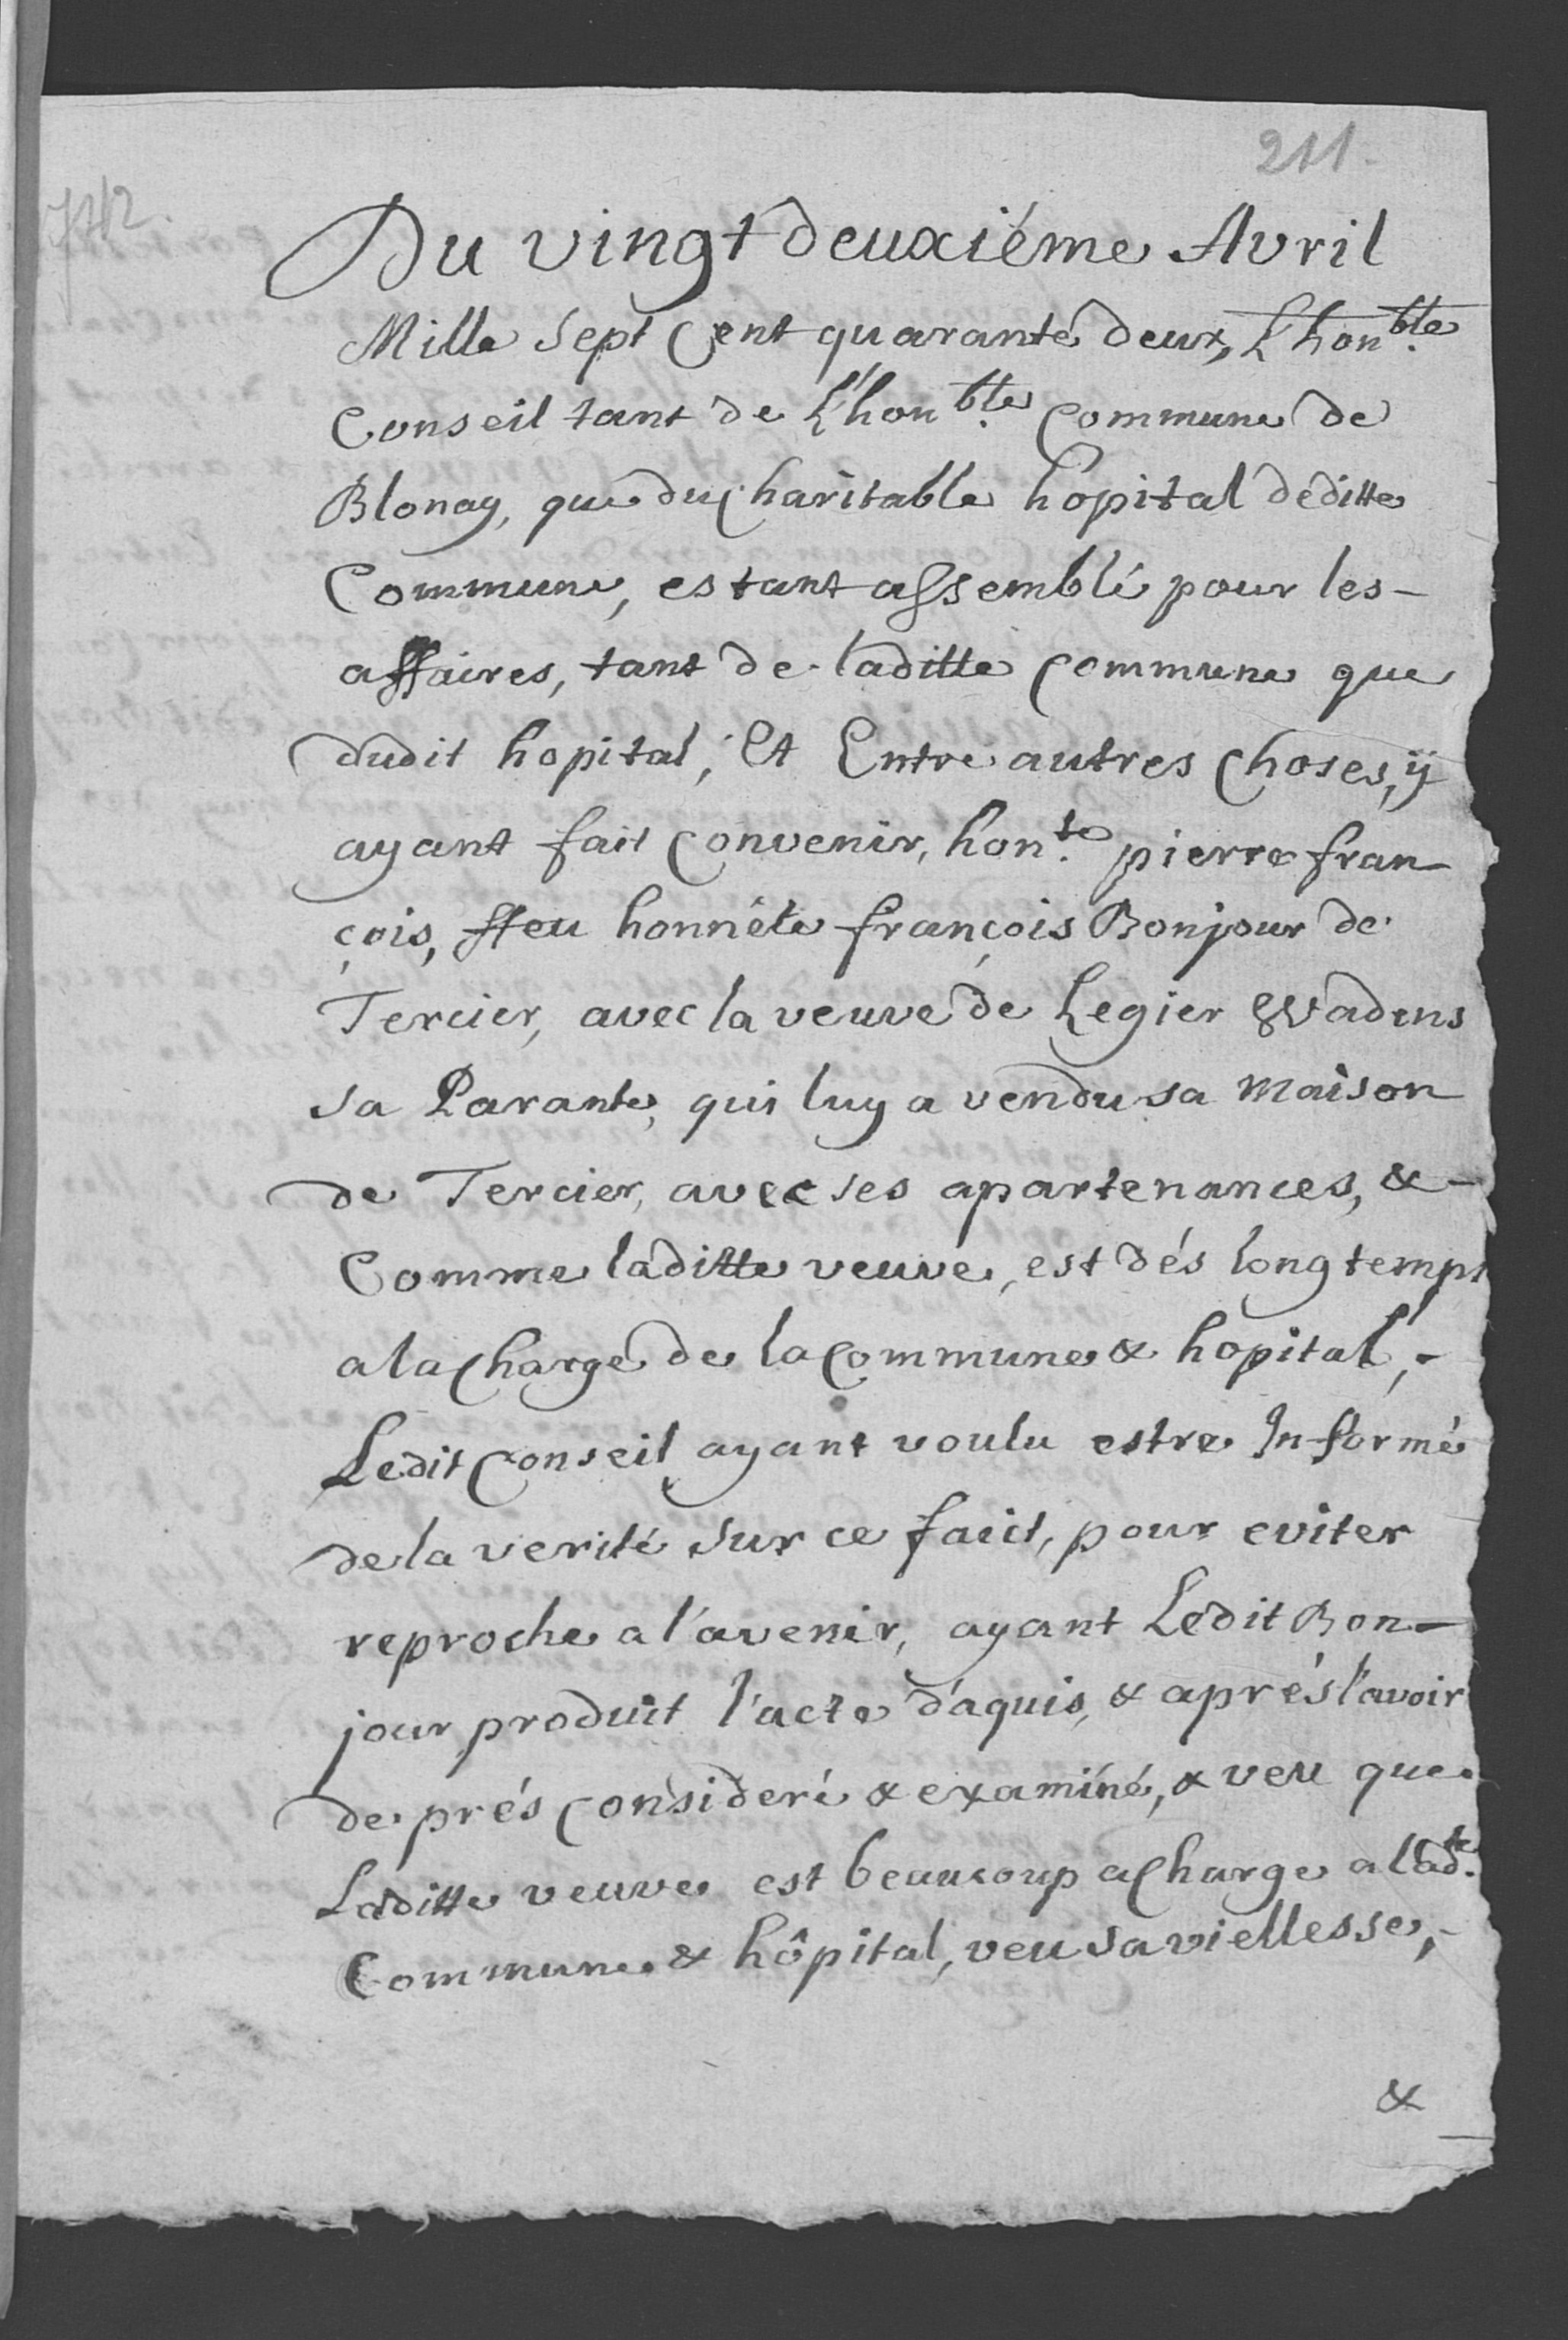 211.
1742.
Du vingt deuxiéme Avril
Mille Sept Cent quarante deux, L'hon.ble
Conseil tant de L'hon.ble Commune de
Blonay, que du charitable hopital deditte
Commune, estant assemblé pour les-
affaires, tant de laditte Commune que
dudit hopital, Et Entre autres Choses, ÿ
ayant fait Convenir, hon.te pierre fran
çois, ffeu honnéte françois Bonjour de
Tercier, avec la veuve de Legier Wadens
sa Parante, qui luy a vendu sa maison
de Tercier, avec ses apartenances, & -
Comme laditte veuve, est dés long temps
a la charge de la Commune & hopital, -
Ledit Conseil ayant voulu estre Informé
de la verité sur ce faict, pour eviter
reproche a l'avenir, ayant Ledit Bon-
jour produit l'acte d'aquis, & aprés l'avoir
de prés Consideré & examiné, & veu que
Laditte veuve est beaucoup a charge a lad.te
Commune & hôpital, veu sa viellesse, -
&